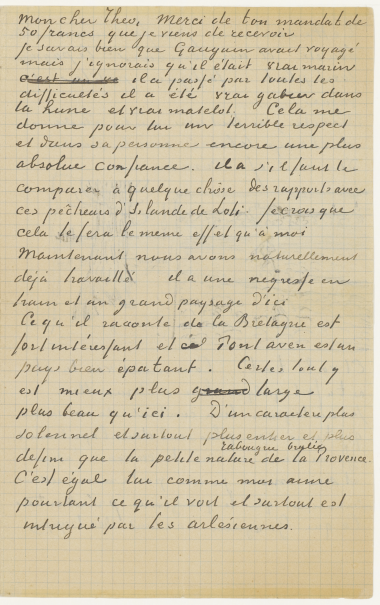 mon cher Theo, Merci de ton mandat de
50 francs que je viens de recevoir
je savais bien que Gauguin avait voyagé
mais j'ignorais qu'il était vrai marin
il a passé par toutes les
difficultés il a été vrai gabier dans
la hune et vrai matelot. Cela me
donne pour lui un terrible respect
et dans sa personne encore une plus
absolue confiance. il a s'il faut le
comparer à quelque chose des rapports avec
ces pêcheurs d'Islande de Loti. je crois que
cela te fera le meme effet qu'à moi
Maintenant nous avons naturellement
déjà travaillé il a une négresse en
train et un grand paysage d'ici
Ce qu'il raconte de la Bretagne est
fort intéressant et Pont aven est un
pays bien épatant. Certes tout y
est mieux plus grand large
plus beau qu'ici. D'un caractère plus
solennel et surtout plus entier et plus
rabougrie brulée
défini que la petite nature de la Provence.
C'est égal lui comme moi aime
pourtant ce qu'il voit et surtout est
intrigué par les arlésiennes.